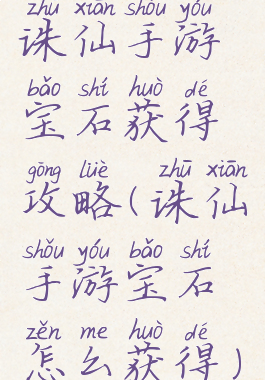 zhū xiān shǒu yóu
诛仙手游
bǎo shí huò dé
宝石获得
gōng lüè zhū xiān
攻略(诛仙
shǒu yóu bǎo shí
手游宝石
zěn me huò dé
怎么获得)